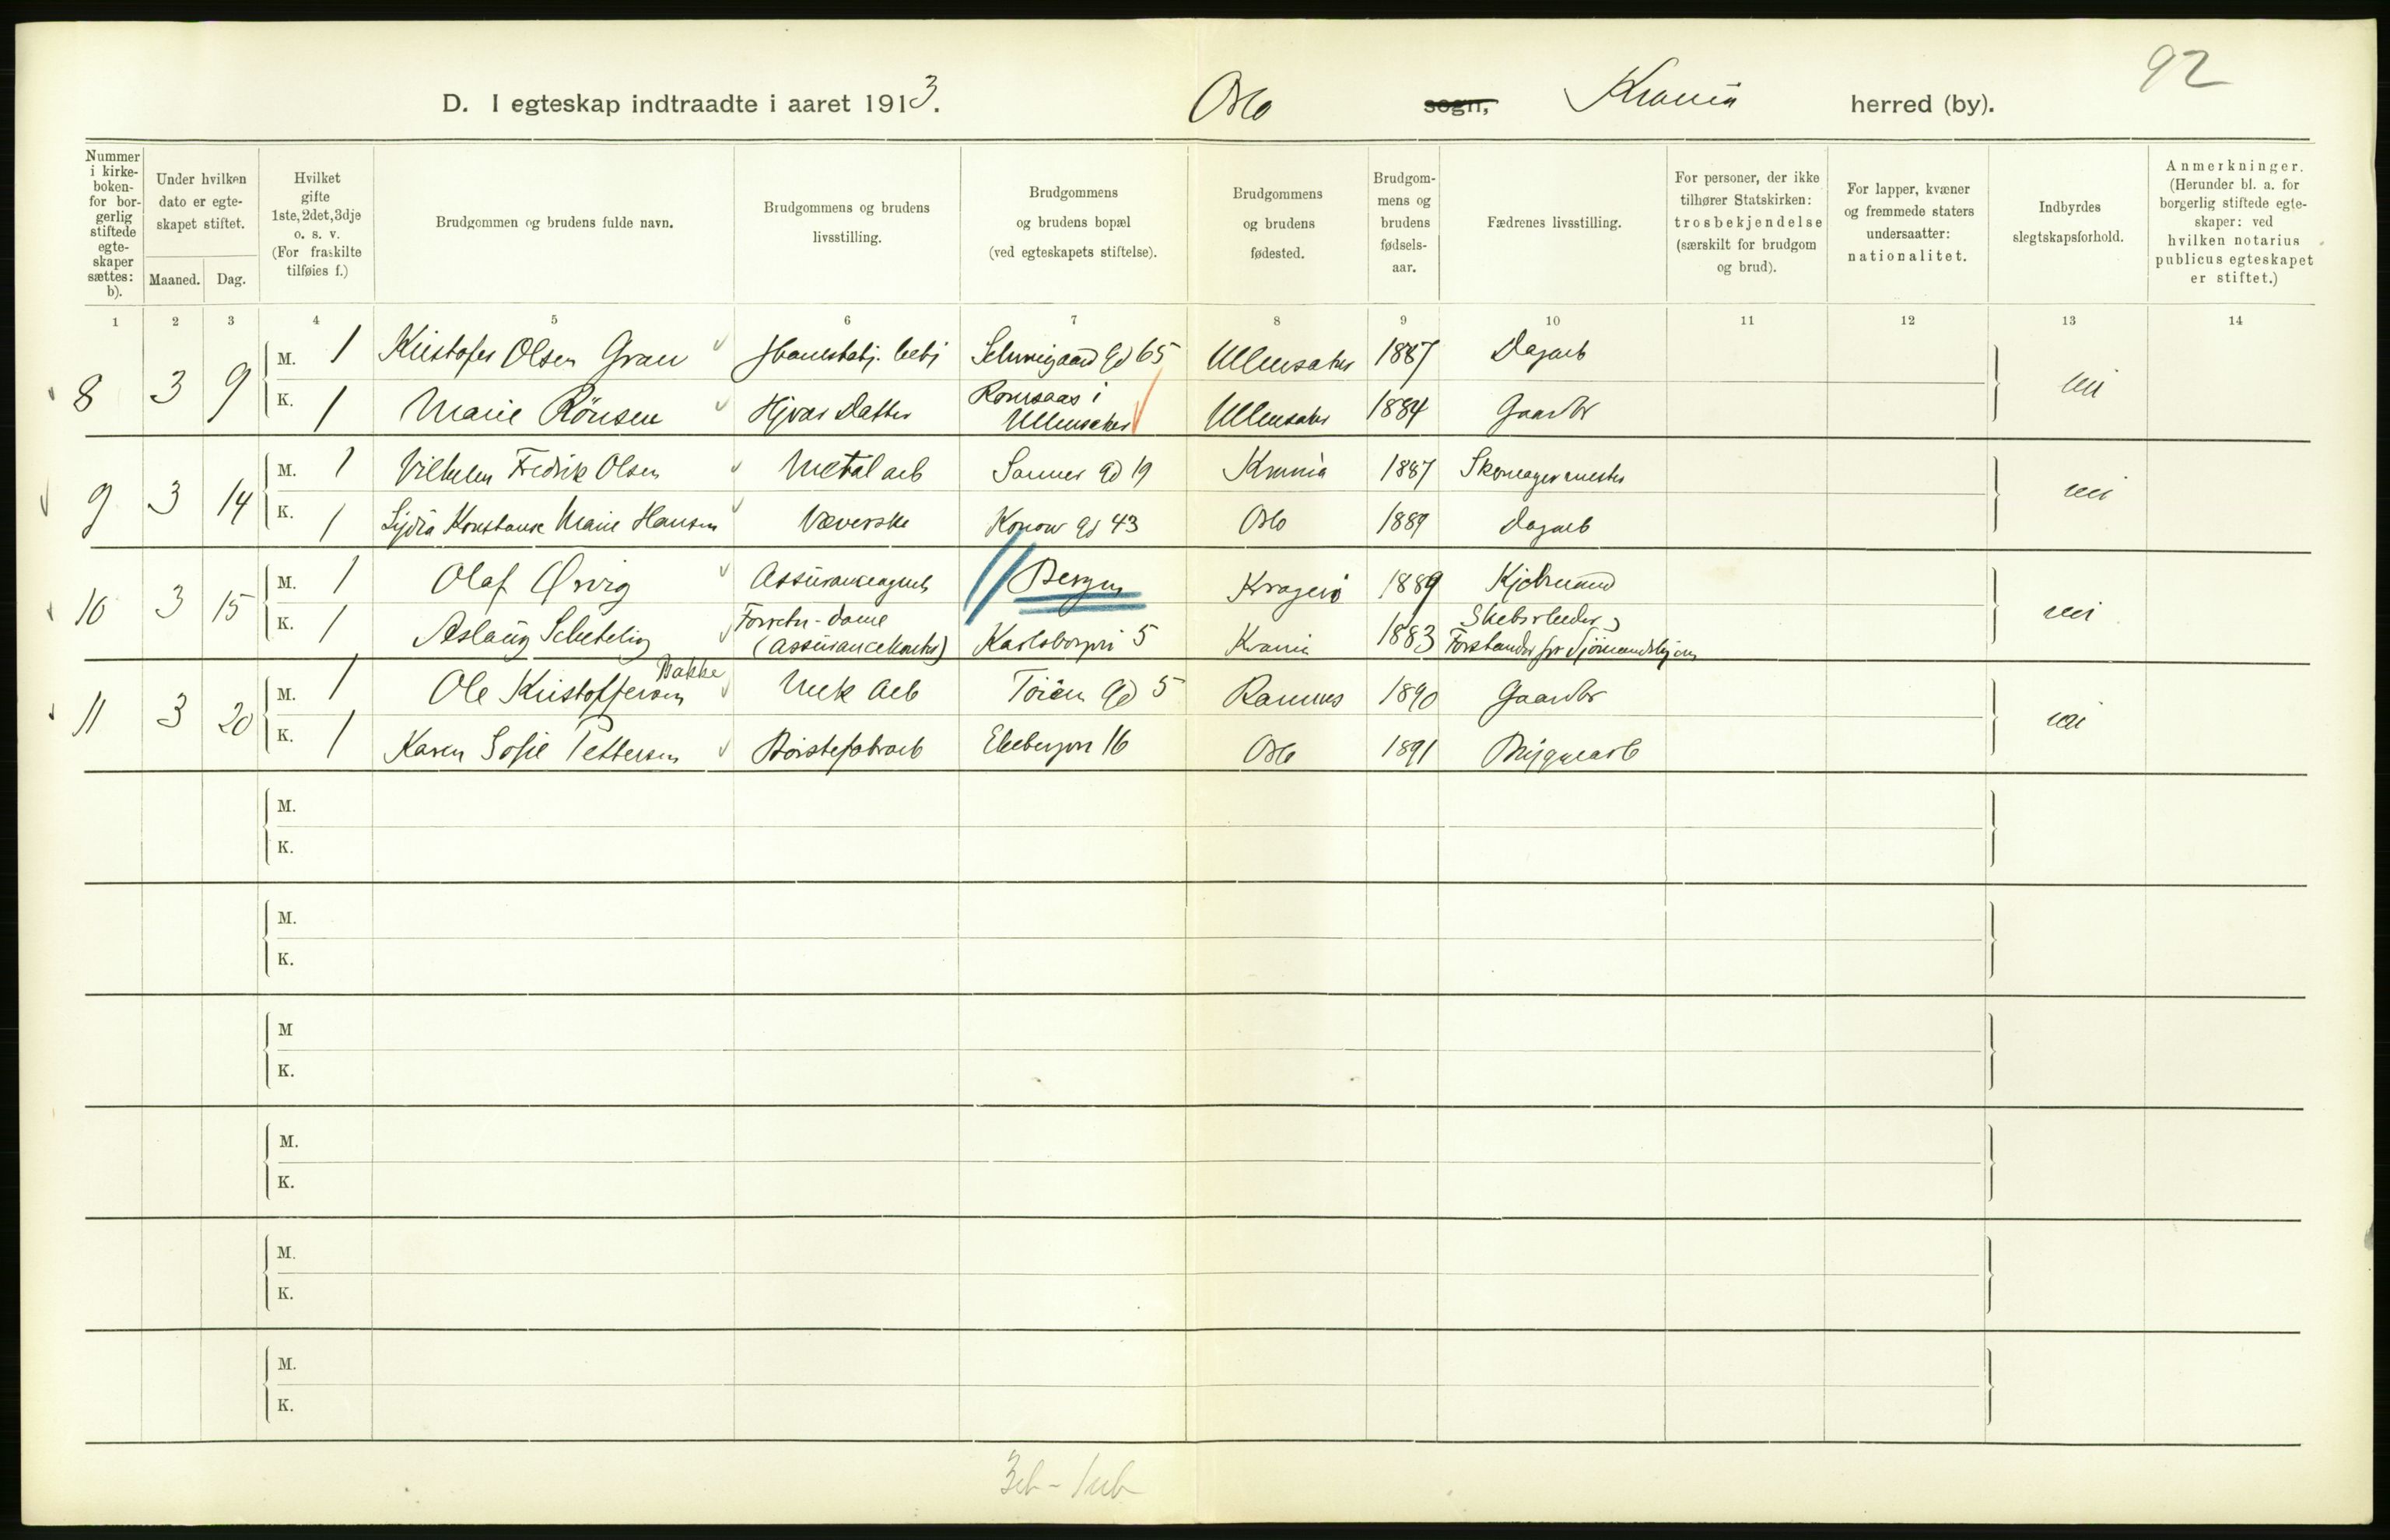 92
D. I egteskap indtraadte i aaret 1913. Oslo sogn, Krania herred (by).
Nummer i kirke-boken- for bor-gerlig stiftede egte-skaper sættes: b).
Under hvilken dato er egte-skapet stiftet.
Maaned. Dag.
Hvilket gifte 1ste, 2det, 3dje o. s. v. (For fraskilte tilføies f.)
Brudgommen og brudens fulde navn.
Brudgommens og brudens livsstilling.
Brudgommens og brudens bopæl (ved egteskapets stiftelse).
Brudgommens og brudens fødested.
Brudgom-mens og brudens fødsels-aar.
Fædrenes livsstilling.
For personer, der ikke tilhører Statskirken: trosbekjendelse (særskilt for brudgom og brud).
For lapper, kvæner og fremmede staters undersaatter: nationalitet.
Indbyrdes slegtskapsforhold.
Anmerkninger. (Herunder bl. a. for borgerlig stiftede egte-skaper: ved hvilken notarius publicus egteskapet er stiftet.)
1 2 3 4 5 6 7 8 9 10 11 12 13 14
8 3 9 M. 1 Kristofer Olsen Gran Schweigaard gd 65 Ullensaker 1887 Dagarb nei
K. 1 Marie Rönsen Hjvær Datter Romsaas i Ullensaker Ullensaker 1884 Gaardbr
9 3 14 M. 1 Vilhelm Fredrik Olsen Metal arb Sanner gd 19 Krania 1887 Skomagermester nei
K. 1 Lydia Konstanse Marie Hansen Væverske Konow gd 43 Oslo 1889 Dagarb
10 3 15 M. 1 Olaf Ørvig Assuranceagent Bergen Kragerö 1889 Kjöbmand nei
K. 1 Aslaug Schetelig Forretn-dame (Assurancekontor) Karlsborgvei 5 Krania 1883 Skibsreder, Forstander for Sjömandshjem
11 3 20 M. 1 Ole Kristoffersen Bakke Mek Arb Töien gd 5 Ramnes 1890 Gaardbr nei
K. 1 Karen Sofie Pettersen Börstefabrarb Ekebergvn 16 Oslo 1891 Bryggearb
M.
K.
M.
K.
M
K.
M.
K.
M.
K.
M.
K.